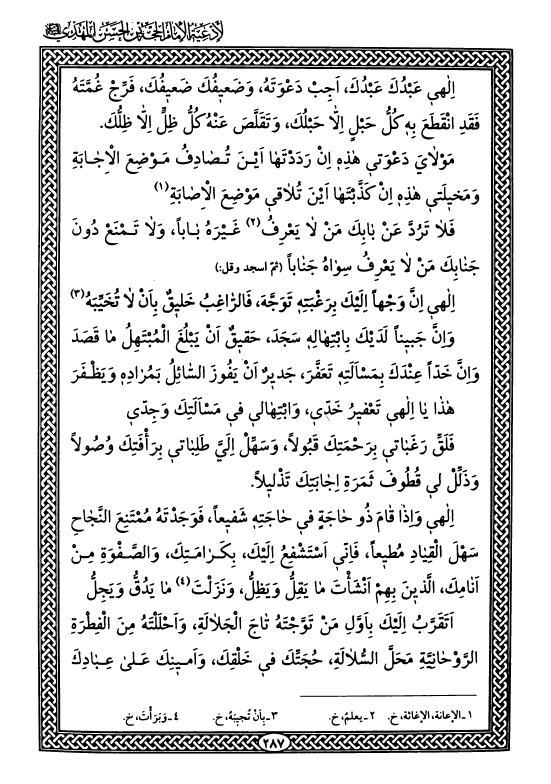 لأدعية الإمام الحجّة بن الحسن المهدي
اِلٰهي عَبْدُكَ عَبْدُكَ، اَجِبْ دَعْوَتَهُ، وَضَعيفُكَ ضَعيفُكَ، فَرِّجْ غُمَّتَهُ
فَقَدِ انْقَطَعَ بِهِ كُلُّ حَبْلٍ اِلّا حَبْلُكَ، وَتَقَلَّصَ عَنْهُ كُلُّ ظِلٍّ اِلّا ظِلُّكَ.
مَوْلايَ دَعْوَتي هٰذِهِ اِنْ رَدَدْتَها اَيْنَ تُصادِفُ مَوْضِعَ الْاِجابَةِ
وَمَخيلَتي هٰذِهِ اِنْ كَذَّبْتَها اَيْنَ تُلاقي مَوْضِعَ الْاِصابَةِ (١)
فَلا تَرُدَّ عَنْ بابِكَ مَنْ لا يَعْرِفُ (٢) غَيْرَهُ باباً، وَلا تَمْنَعْ دُونَ
جَنابِكَ مَنْ لا يَعْرِفُ سِواهُ جَناباً (ثمّ اسجد وقل:)
اِلٰهي اِنَّ وَجْهاً اِلَيْكَ بِرَغْبَتِهِ تَوَجَّهَ، فَالرّاغِبُ خَليقٌ بِاَنْ لا تُخَيِّبَهُ (٣)
وَاِنَّ جَبيناً لَدَيْكَ بِابْتِهالِهِ سَجَدَ، حَقيقٌ اَنْ يَبْلُغَ الْمُبْتَهِلُ ما قَصَدَ
وَاِنَّ خَدّاً عِنْدَكَ بِمَسْاَلَتِهِ تَعَفَّرَ، جَديرٌ اَنْ يَفُوزَ السّائِلُ بِمُرادِهِ وَيَظْفَرَ
هٰذا يا اِلٰهي تَعْفيرُ خَدّي، وَابْتِهالي في مَسْاَلَتِكَ وَجِدّي
فَلَقِّ رَغَباتي بِرَحْمَتِكَ قَبُولاً، وَسَهِّلْ اِلَيَّ طَلِباتي بِرَأْفَتِكَ وُصُولاً
وَذَلِّلْ لي قُطُوفَ ثَمَرَةِ اِجابَتِكَ تَذْليلاً.
اِلٰهي وَاِذا قامَ ذُو حاجَةٍ في حاجَتِهِ شَفيعاً، فَوَجَدْتَهُ مُمْتَنِعَ النَّجاحِ
سَهْلَ الْقِيادِ مُطيعاً، فَاِنّي اَسْتَشْفِعُ اِلَيْكَ، بِكَرامَتِكَ، وَالصَّفْوَةِ مِنْ
اَنامِكَ، الَّذينَ بِهِمْ اَنْشَأْتَ ما يَقِلُّ وَيَظِلُّ، وَنَزَلْتَ (٤) ما يَدُقُّ وَيَجِلُّ
اَتَقَرَّبُ اِلَيْكَ بِاَوَّلِ مَنْ تَوَّجْتَهُ تاجَ الْجَلالَةِ، وَاَحْلَلْتَهُ مِنَ الْفِطْرَةِ
الرَّوْحانِيَّةِ مَحَلَّ السُّلالَةِ، حُجَّتِكَ في خَلْقِكَ، وَاَمينِكَ عَلىٰ عِبادِكَ
١ـ الإعانة، الإغاثة، خ. ٢ـ يعلمُ، خ. ٣ـ بِاَنْ تُجيبَهُ، خ. ٤ـ وَبَرَأْتَ، خ.
٢٨٧